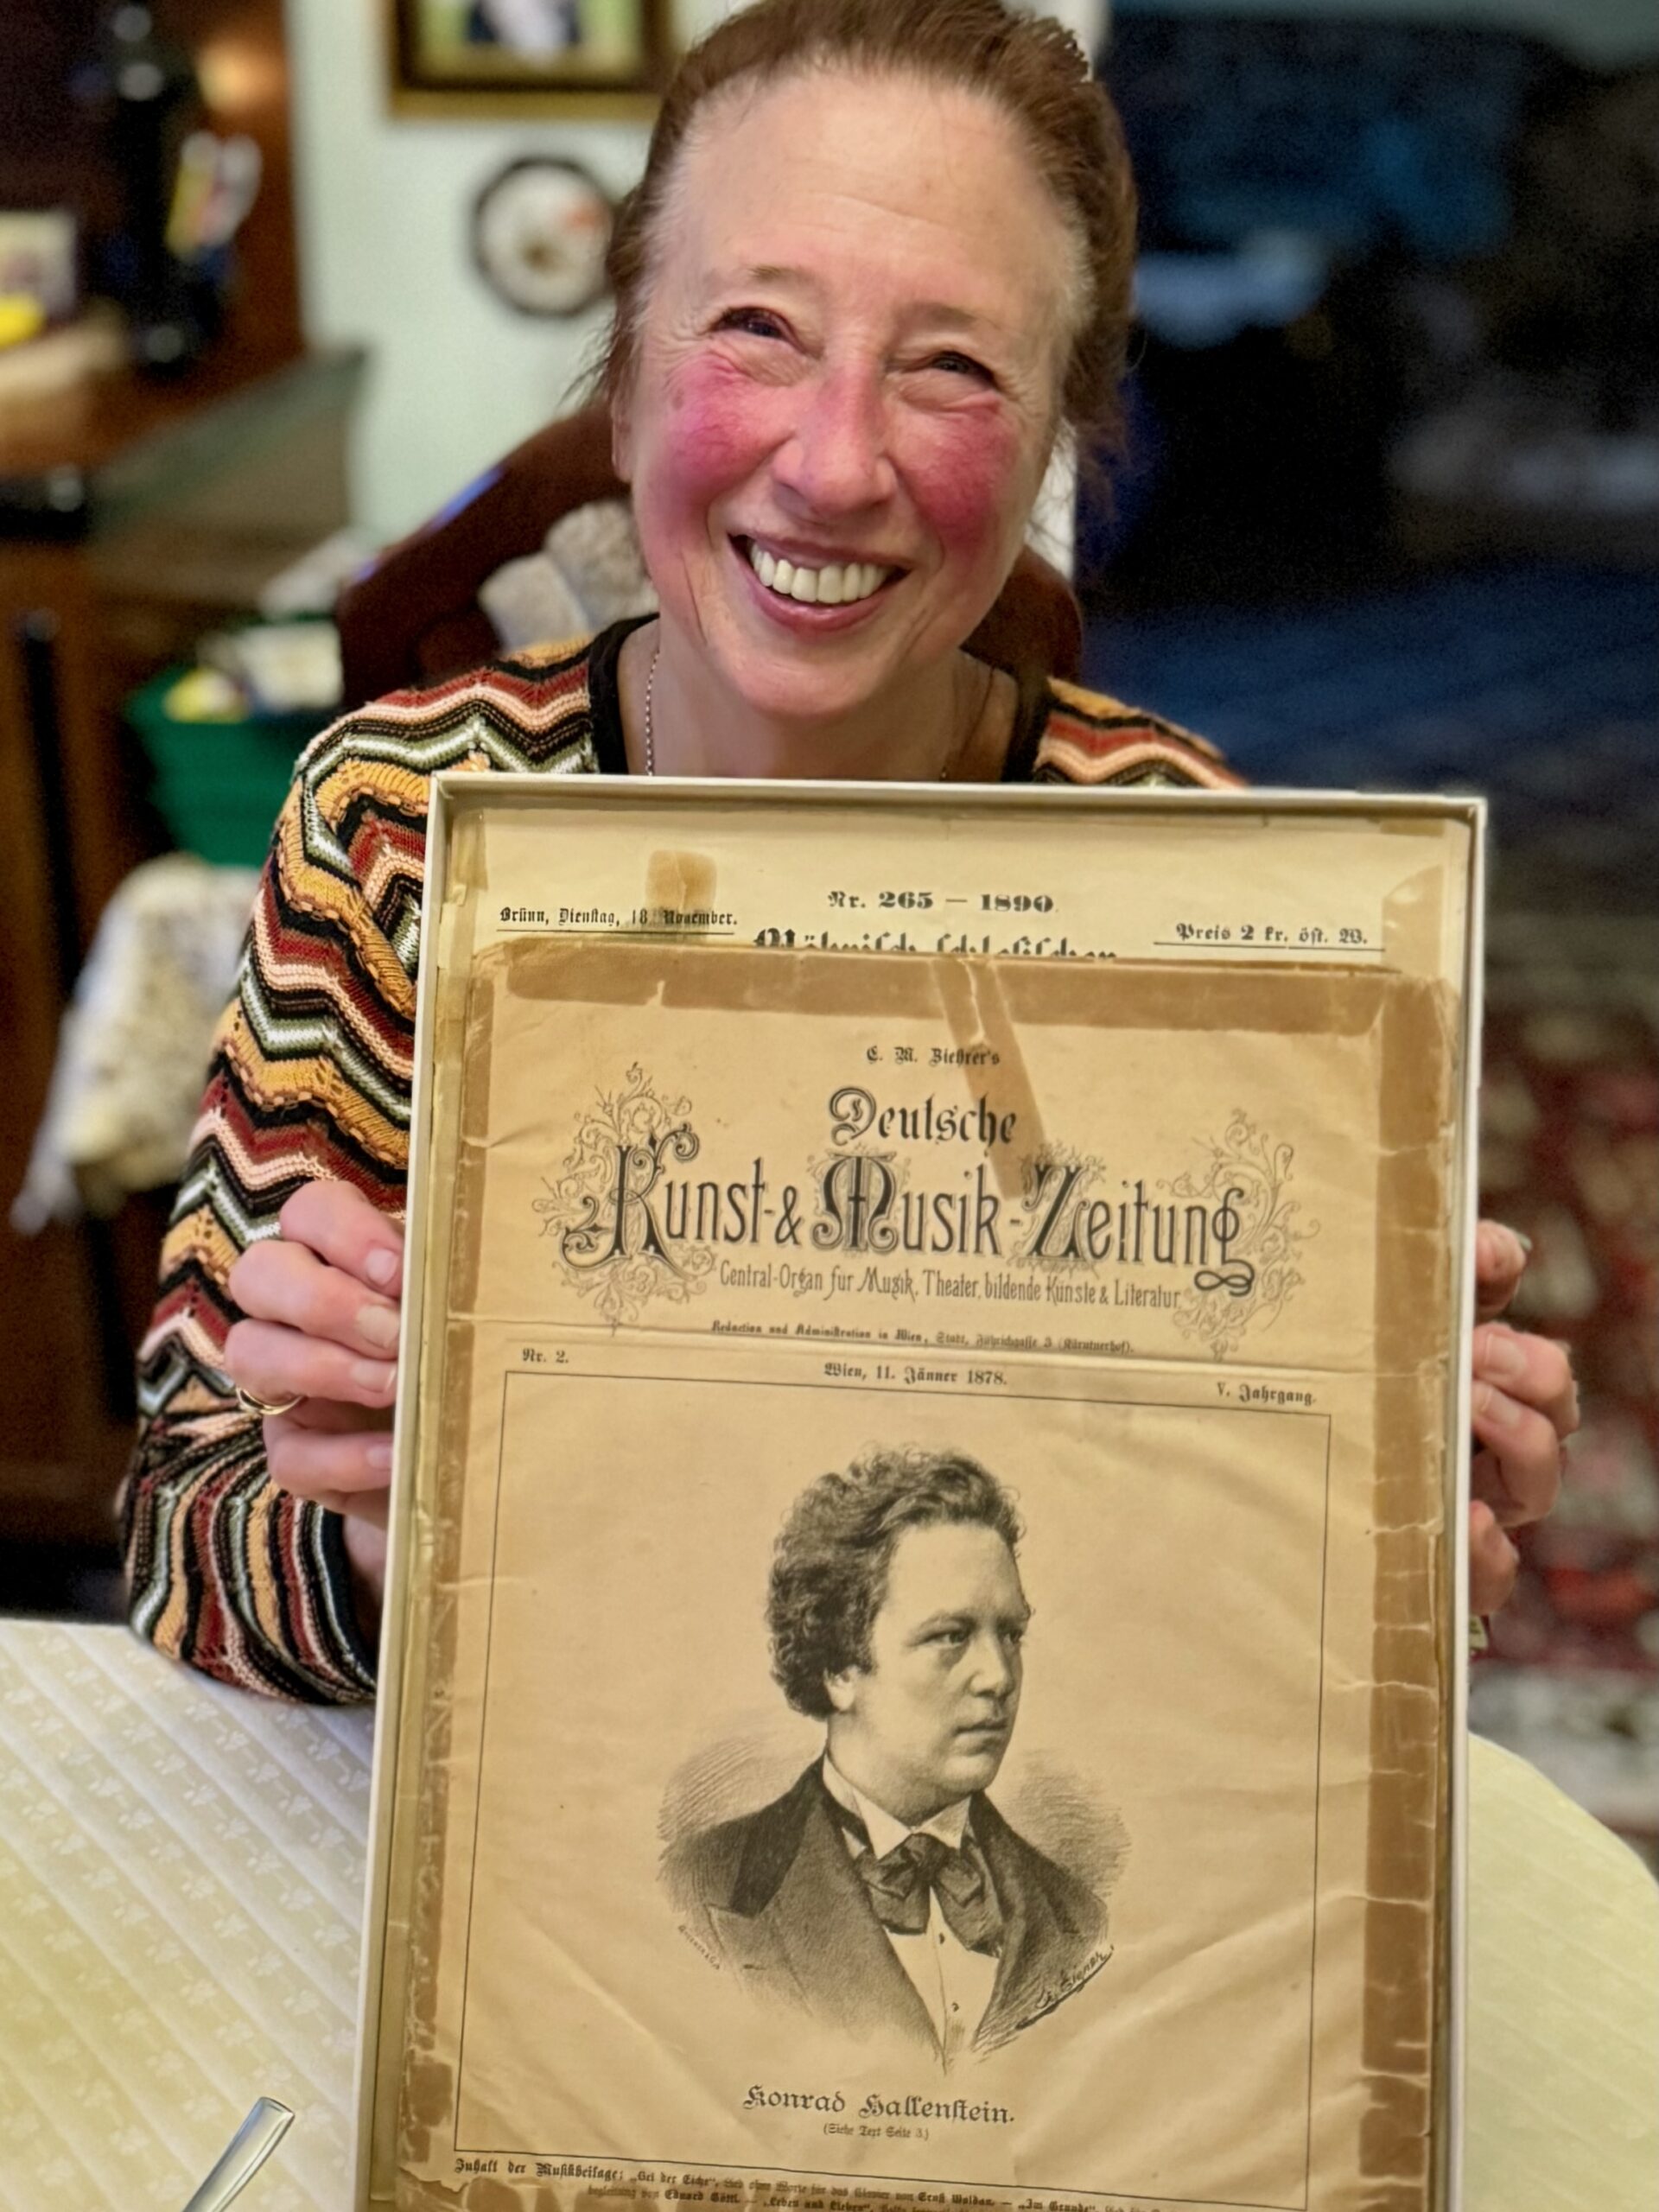 Nr. 265 — 1890.
Brünn, Dienstag, 18. November.
Preis 2 kr. öst. W.
Mährisch-schlesischen
C. M. Ziehrer's
Deutsche
Kunst-& Musik-Zeitung
Central-Organ für Musik, Theater, bildende Künste & Literatur
Redaction und Administration in Wien, Stadt, (Kärntnerhof).
Nr. 2.
Wien, 11. Jänner 1878.
V. Jahrgang.
Konrad Hallenstein.
(Siehe Text Seite 3.)
Inhalt der Musikbeilage: „Bei der Eiche“, Lied ohne Worte für das Clavier von Ernst Woldan. — „Im Grunde“,
begleitung von Eduard Göttl. — „Leben und Lieben“,